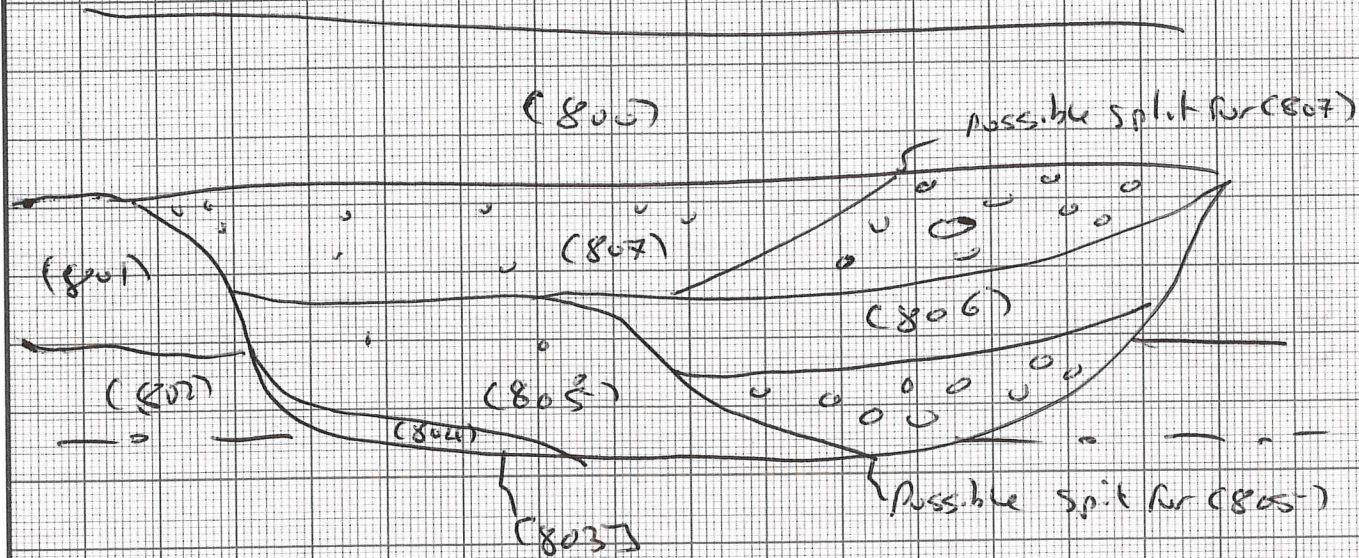 (800)
possible split for (807)
(807)
(801)
(806)
(802)
(805)
(804)
possible split for (805)
[803]